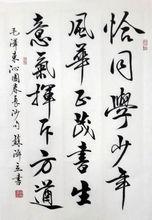 恰同學少年
風華正茂書生
意氣揮斥方遒
毛澤東沁園春長沙句蘇澤立書